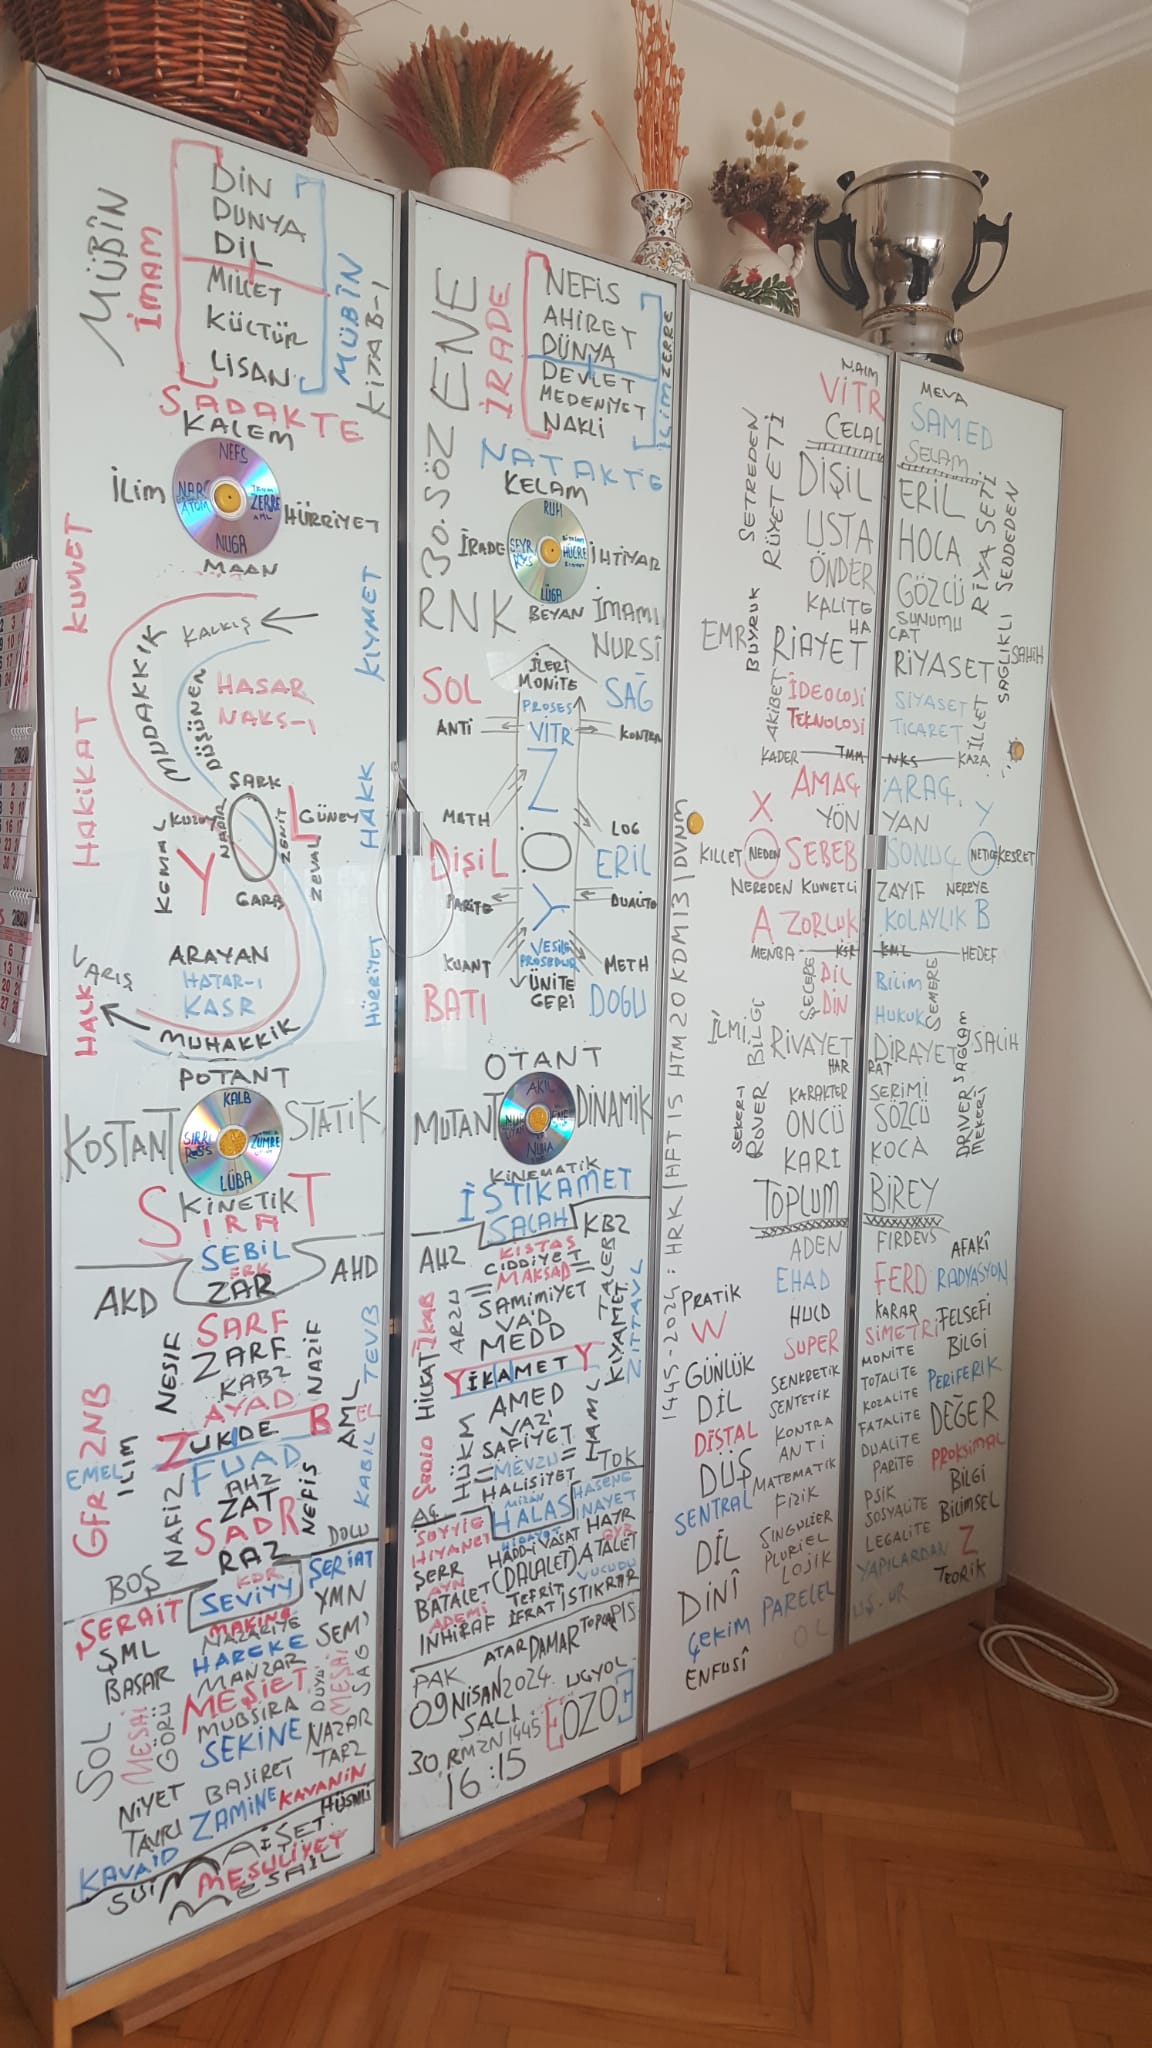 MÜBİN
İMAM
DİN
DUNYA
DİL
MİLLET
KÜLTÜR
LİSAN
MÜBİN
KİTAB-I
SADAKTE
KALEM
NEFS
İLİM
NAR
ATOM
ZERRE
HÜRRİYET
NUGA
MAAN
KUVVET
KIYMET
KALKIŞ
MUDAKKIK
DÜŞÜNEN
HASAR
NAKŞ-I
HAKİKAT
HAKK
ŞARK
KUZEY
NADİR
ZENİT
L
GÜNEY
KEMAL
Y
ZEVAL
GARB
VARIŞ
ARAYAN
HATAR-I
KASR
HALK
HÜRRİYET
MUHAKKİK
POTANT
KALB
KOSTANT
SIRRI
ZÜMRE
STATİK
LÜBA
KİNETİK
SIRAT
SEBİL
ERK
ZAR
AKD
AHD
SARF
ZARF
KABZ
AYAD
ZUKDE B
FUAD
AHZ
ZAT
SADR
RAZ
NESİF
NAZİF
TEVB
GFR ZNB
EMEL
İLİM
AML
EL
KABİL
NAFİZ
NEFİS
BOŞ
DOLU
KDR
SEVİYY
ŞERİAT
SERAİT
MAKİNA
NAZARİYE
YMN
ŞML
HAREKE
SEM'
BASAR
MANZAR
MEŞİET
SOL
MESAİ
GÖRÜ
DUYU
MESAİ
SAĞ
MUBSIRA
SEKİNE
NAZAR
NİYET
BASİRET
TARZ
TAVRI
ZAMİNE
KAVANİN
KAVAİD
HÜSNÜ
SUİ
MAİŞET
MESULİYET
MESAİL
ENE
İRADE
NEFİS
AHİRET
DÜNYA
DEVLET
MEDENİYET
NAKLİ
ZERRE
İLİM
30.SÖZ
NATAKTE
KELAM
RUH
İRADE
SEYR
HÜCRE
İHTİYAR
LÜGA
RNK
BEYAN
İMAMI
NURSİ
İLERİ
MONİTE
SOL
SAĞ
PROSES
ANTİ
VİTR
KONTRA
Z
MATH
LOG
DİŞİL
O
ERİL
PARİTE
DUALİTE
Y
KUANT
VESİLE
PROSEDÜR
METH
BATI
ÜNİTE
GERİ
DOGU
OTANT
AKIL
MUTANT
NUR
ENE
DİNAMİK
NUHA
KİNEMATİK
İSTİKAMET
SALAH
KBZ
AHZ
KISTAS
CİDDİYET
MAKSAD
SAMİMİYET
VA'D
MEDD
İKAB
ARZU
TALEB
KIYAMET
ZITTAVL
YİKAMET Y
HİLKAT
AMED
VAZI
SAFİYET
MEVZU
HALİSİYET
HÜKM
HAML
TOK
AÇ
MİZAN
HASENE
SEYYİE
HALAS
İNAYET
HİYANET
HİDAYET
HAYR
ŞERR
HADD-İ VASAT
AYN
GYR
BATALET
(DALALET)
ATALET
ADEMİ
TEFRİT
VUCUDU
İNHİRAF
İFRAT
İSTİKRAR
PAK
ATAR
DAMAR
TOPLAR
PİS
09NİSAN2024
UGYOL
SALI
EOZOE
30.RMZN1445
16:15
1445-2024: HRK|HFT15 HTM20KDM13|DVNM
NAİM
VİTR
CELAL
SETREDEN
RÜYETETİ
DİŞİL
USTA
ÖNDER
KALİTE
HA
EMR
BUYRUK
RİAYET
AKİBET
İDEOLOJİ
TEKNOLOJİ
KADER
TMM
AMAÇ
X
YÖN
KILLET
NEDEN
SEBEB
NEREDEN
KUVVETLİ
A ZORLUK
MENBA
KSR
ŞECERE
DİL
DİN
İLMİ
BİLGİ
RİVAYET
HAR
SEKER-İ
ROVER
KARAKTER
ÖNCÜ
KARI
TOPLUM
ADEN
PRATİK
EHAD
W
HULD
SUPER
GÜNLÜK
DİL
SENKRETİK
SENTETİK
DİSTAL
KONTRA
ANTİ
DÜŞ
MATEMATİK
SENTRAL
FİZİK
DİL
SINGULIER
PLURIEL
LOJİK
DİNİ
PARELEL
ÇEKİM
OL
ENFUSİ
MEVA
SAMED
SELAM
ERİL
HOCA
RİYASETİ
SEDDEDEN
GÖZCÜ
SUNUMU
CAT
RİYASET
SAĞLIKLI
SAHİH
SİYASET
TİCARET
İLLET
NKS
KAZA
ARAÇ
YAN
Y
SONUÇ
NETİCE
KESRET
ZAYIF
NEREYE
KOLAYLIK B
KML
HEDEF
BİLİM
HUKUK
SEMERE
DİRAYET
SAĞLAM
SALİH
RAT
SERİMİ
SÖZCÜ
DRIVER
MEKERİ
KOCA
BİREY
FİRDEVS
AFAKİ
FERD
RADYASYON
KARAR
FELSEFİ
SİMETRİ
BİLGİ
MONİTE
TOTALİTE
PERİFERİK
KOZALİTE
FATALİTE
DEĞER
DUALİTE
PARİTE
PROKSİMAL
PSİK
BİLGİ
SOSYALİTE
BİLİMSEL
LEGALİTE
YAPILARDAN
Z
TEORİK